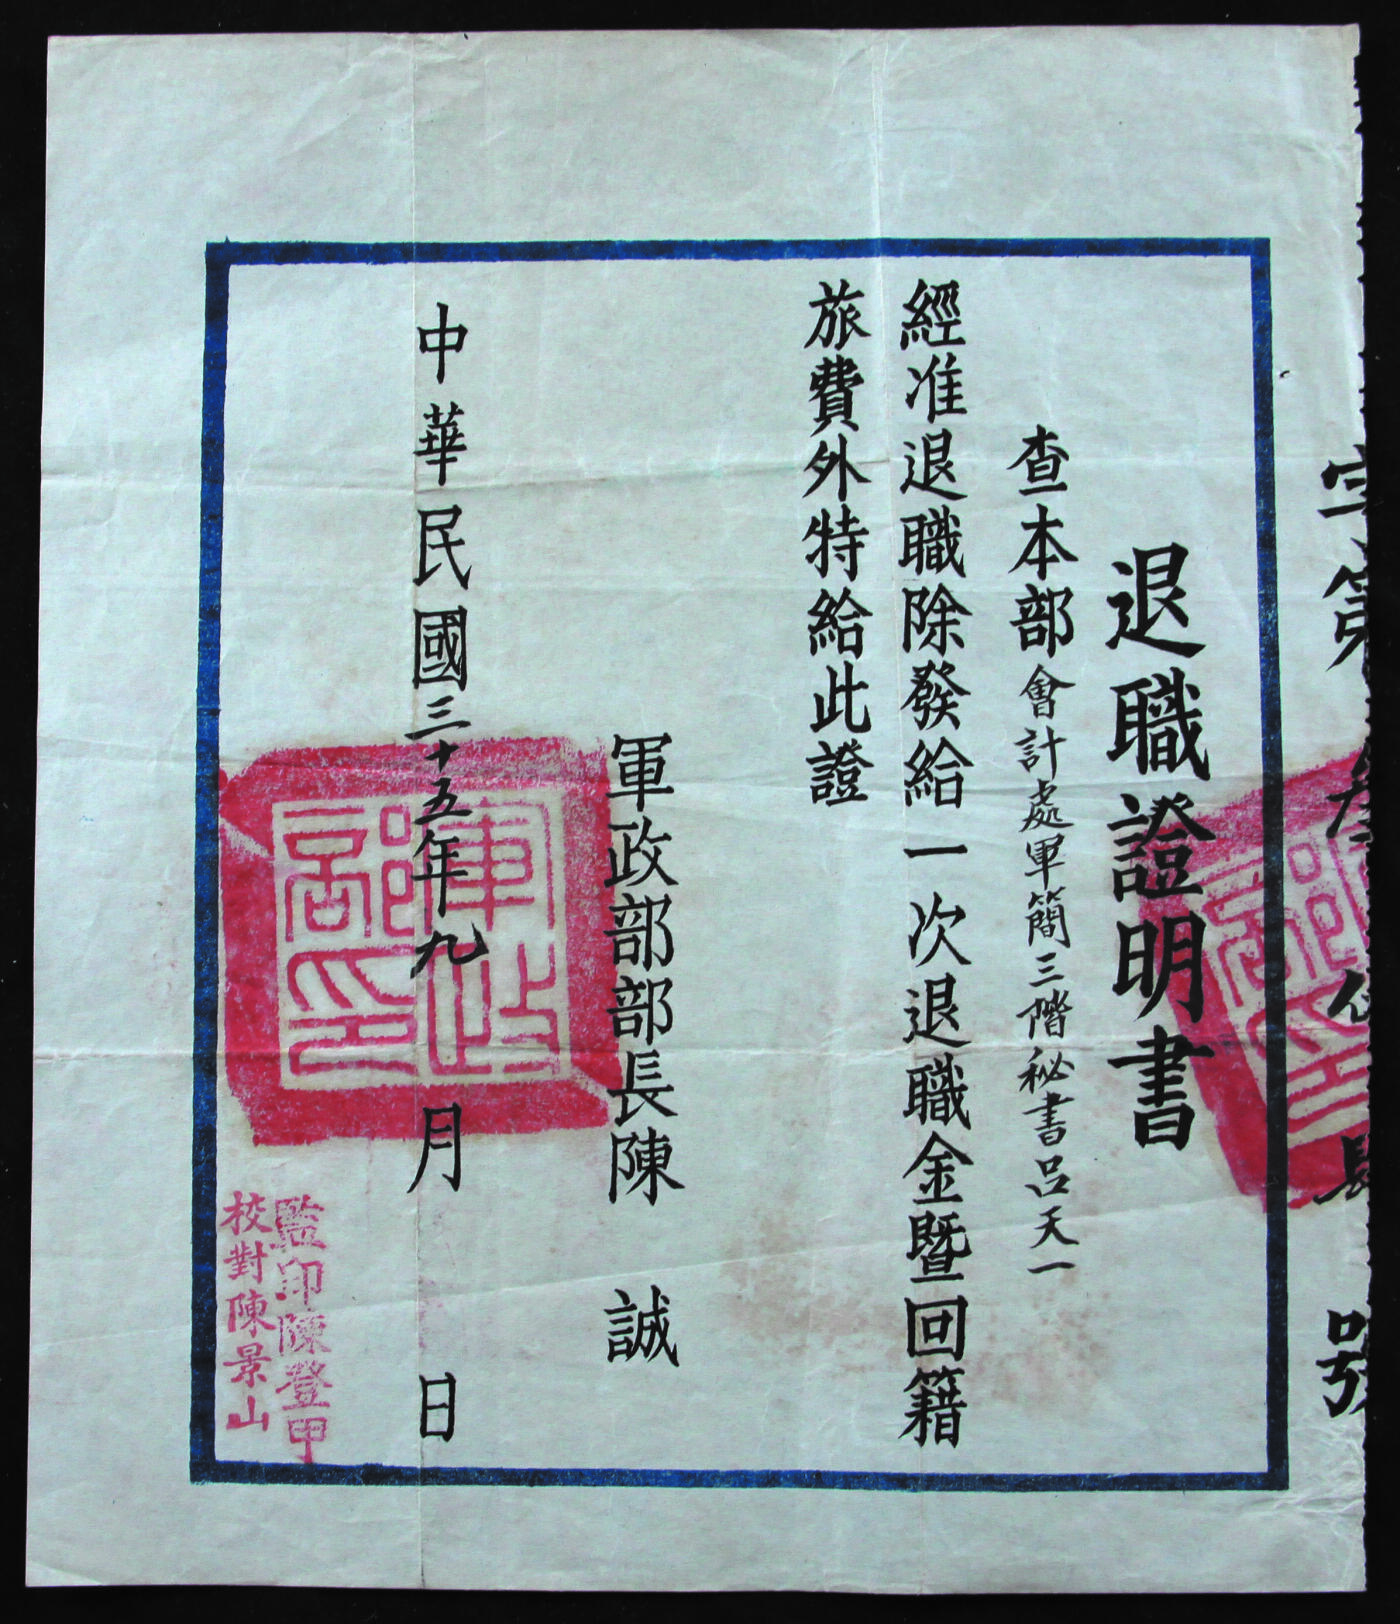 字第叁佰肆號
退職證明書
查本部會計處軍簡三階秘書呂天一
經准退職除發給一次退職金暨回籍
旅費外特給此證
軍政部部長陳誠
中華民國三十五年九月日
軍政部印
監印陳登甲
校對陳景山